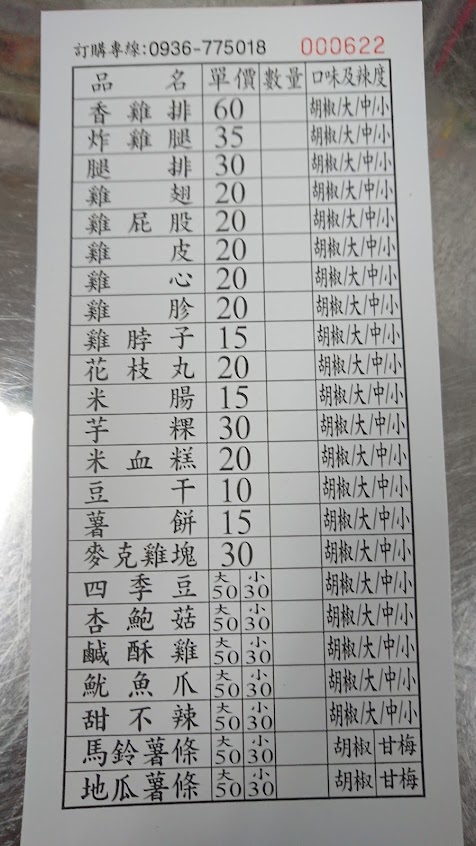 訂購專線:0936-775018 000622
品名 單價 數量 口味及辣度
香雞排 60 胡椒/大/中/小
炸雞腿 35 胡椒/大/中/小
腿排 30 胡椒/大/中/小
雞翅 20 胡椒/大/中/小
雞屁股 20 胡椒/大/中/小
雞皮 20 胡椒/大/中/小
雞心 20 胡椒/大/中/小
雞胗 20 胡椒/大/中/小
雞脖子 15 胡椒/大/中/小
花枝丸 20 胡椒/大/中/小
米腸 15 胡椒/大/中/小
芋粿 30 胡椒/大/中/小
米血糕 20 胡椒/大/中/小
豆干 10 胡椒/大/中/小
薯餅 15 胡椒/大/中/小
麥克雞塊 30 胡椒/大/中/小
四季豆 大50 小30 胡椒/大/中/小
杏鮑菇 大50 小30 胡椒/大/中/小
鹹酥雞 大50 小30 胡椒/大/中/小
魷魚爪 大50 小30 胡椒/大/中/小
甜不辣 大50 小30 胡椒/大/中/小
馬鈴薯條 大50 小30 胡椒 甘梅
地瓜薯條 大50 小30 胡椒 甘梅